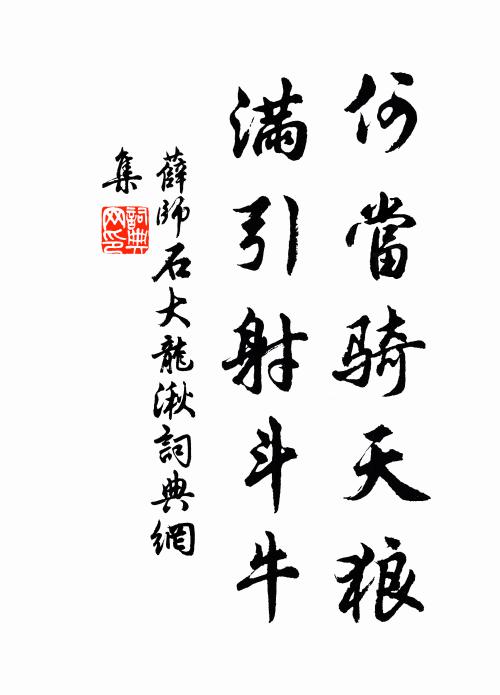 何當骑天狼
滿引射斗牛
薛師石大龍湫詞典網
集
詞典网印